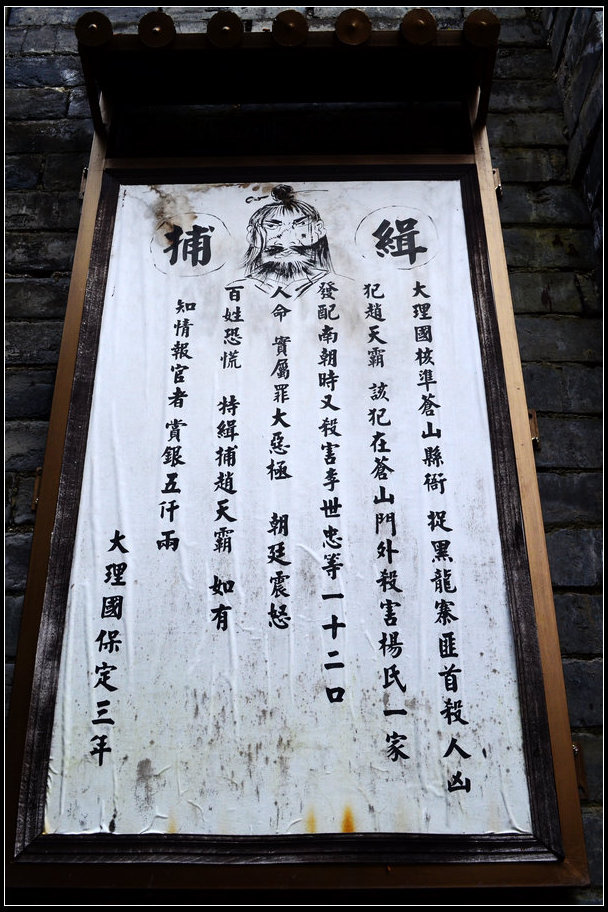 緝捕
大理國核準蒼山縣衙 捉黑龍寨匪首殺人凶
犯趙天霸 該犯在蒼山門外殺害楊氏一家
發配南朝時又殺害李世忠等一十二口
人命 實屬罪大惡極 朝廷震怒
百姓恐慌 持緝捕趙天霸 如有
知情報官者 賞銀五仟兩
大理國保定三年